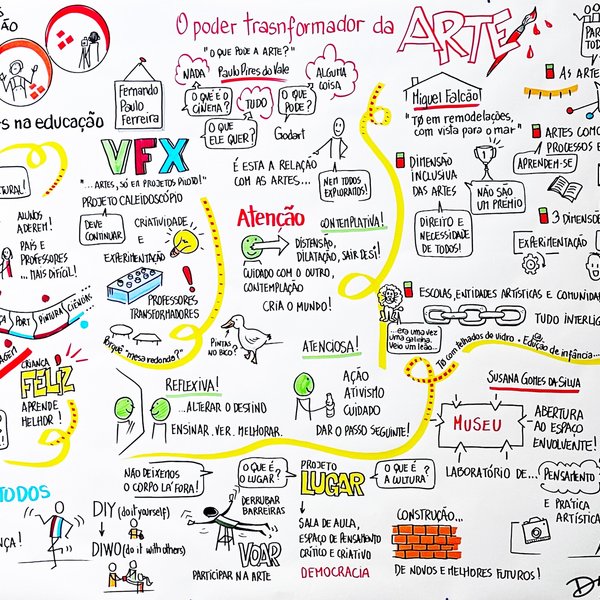 O poder trasnformador da ARTE
"O QUE PODE A ARTE?"
Paulo Pires do Vale
NADA
ALGUMA
COISA
O QUE É O
CINEMA?
TUDO
O QUE
PODE?
O QUE
ELE QUER?
Godart
É ESTA A RELAÇÃO
COM AS ARTES...
NEM TODOS
EXPLORAMOS!
Fernando
Paulo
Ferreira
NA EDUCAÇÃO
VFX
"...ARTES, SÓ EM PROJETOS PILOTO!"
PROJETO CALEIDOSCÓPIO
DEVE
CONTINUAR
CRIATIVIDADE
E
EXPERIMENTAÇÃO
PROFESSORES
TRANSFORMADORES
Porquê "mesa redonda?"
PINTAS
NO BICO?
ALUNOS
ADEREM!
PAIS E
PROFESSORES
...MAIS DIFÍCIL!
PORT
PINTURA
CIÊNCIAS
CRIANÇA
FELIZ
APRENDE
MELHOR!
Atenção
CONTEMPLATIVA!
DISTENSÃO,
DILATAÇÃO, SAIR DE SI!
CUIDADO COM O OUTRO,
CONTEMPLAÇÃO
CRIA O MUNDO!
ATENCIOSA!
AÇÃO
ATIVISMO
CUIDADO
DAR O PASSO SEGUINTE!
REFLEXIVA!
...ALTERAR O DESTINO
ENSINAR. VER. MELHORAR.
Miguel Falcão
"Tō em remodelações,
com vista para o mar"
DIMENSÃO
INCLUSIVA
DAS ARTES
NÃO SÃO
UM PRÉMIO
DIREITO E
NECESSIDADE
DE TODOS!
AS ARTE
ARTES COMO
PROCESSOS E
APRENDEM-SE
3 DIMENSÕE
EXPERIMENTAÇÃO
ESCOLAS, ENTIDADES ARTÍSTICAS E COMUNIDA
TUDO INTERLIG
...era uma vez
uma galinha.
Veio um leão...
Tō com telhados de vidro - Edição de infância...
SUSANA GOMES DA SILVA
MUSEU
ABERTURA
AO ESPAÇO
ENVOLVENTE!
LABORATÓRIO DE...
PENSAMENTO
E PRÁTICA
ARTÍSTICA
TODOS
DIY (do it yourself)
DIWO (do it with others)
NÃO DEIXEMOS
O CORPO LÁ FORA!
O QUE É O
LUGAR?
DERRUBAR
BARREIRAS
VOAR
PARTICIPAR NA ARTE
PROJETO
LUGAR
O QUE É
A CULTURA?
SALA DE AULA,
ESPAÇO DE PENSAMENTO
CRÍTICO E CRIATIVO
DEMOCRACIA
CONSTRUÇÃO...
DE NOVOS E MELHORES FUTUROS!